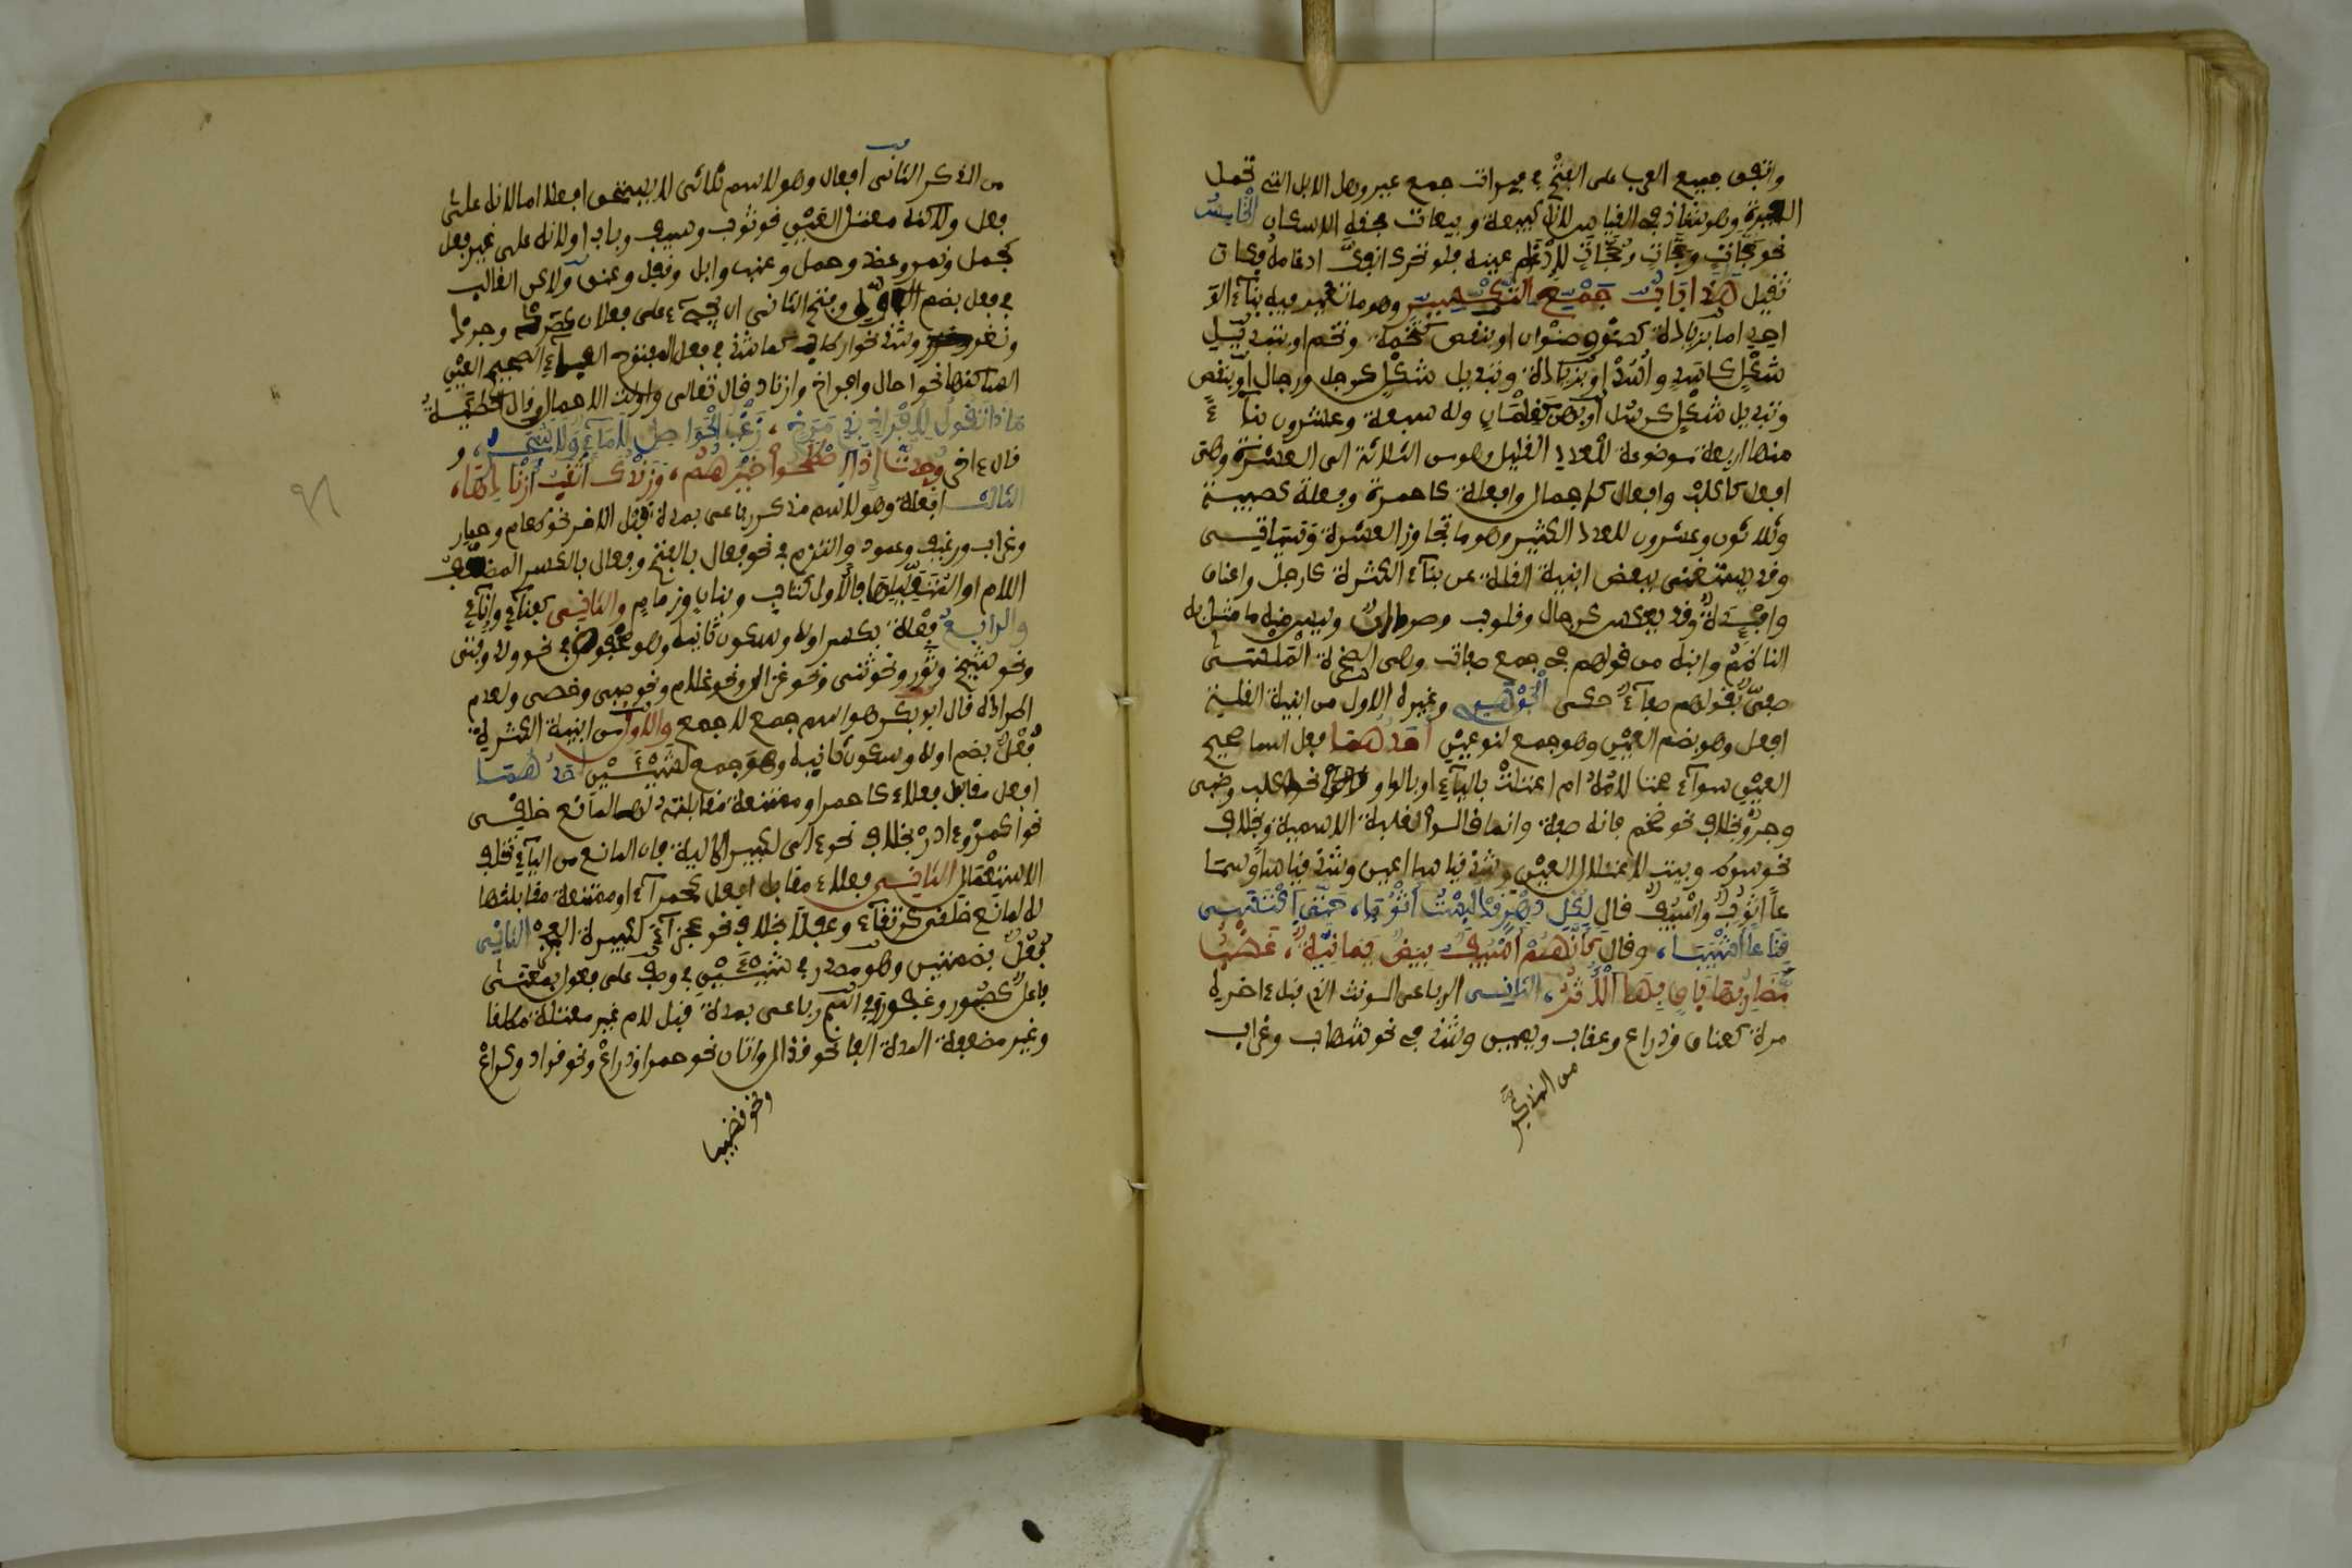 واتفق جميع العرب على الفتح في عيرات جمع عير وهي الابل التي تحمل
الميرة وهو شاذ في القياس لانه كبيعة وبيعات فحقه الاسكان الخامس
نحو حجات وحجات وحجات للادغام عينه فلو تحرك انفك ادغامه فكان
تثقيل هذا باب جمع التكسير وهو ما تغير فيه بناء الو
احد اما بزيادة كصنو وصنوان او بنقص كتخمة وتخم او بتبديل
شكل كاسد واسد او بزيادة وتبديل شكل كرجل ورجال او بنقص
وتبديل شكل كرسل او بهن كغلمان وله سبعة وعشرون بناء
منها اربعة موضوعة للعدد القليل وهو من الثلاثة الى العشرة وهي
افعل كاكلب وافعال كاجمال وافعلة كاحمرة وفعلة كصبية
وثلاثون وعشرون للعدد الكثير وهو ما تجاوز العشرة وسياتي
وقد يستغنى ببعض ابنية القلة عن بناء الكثرة كارجل واعناق
وافئدة وقد يعكس كرجال وقلوب وصردان وليس منه ما مثل به
الناظم وابنه من قولهم في جمع صفاة وهي الصخرة الملساء
صفي لقولهم صفاء حكى الجوهري وغيره الاول من ابنية القلة
افعل وهو بضم العين وهو جمع لنوعين احدهما فعل اسما صحيح
العين سواء صحت لامه ام اعتلت بالياء او بالواو نحو كلب وظبي
وجرو بخلاف نحو ضخم فانه صفة وانما قالوا اعبد لغلبة الاسمية وبخلاف
نحو سوط وبيت لاعتلال العين وشذ قياسا اعين وشذ قياسا وسما
عا اثوب واسيف قال لكل دهر قد لبست اثوبا، حتى اكتسى
قناعا اشيبا، وقال كانهم اسيف بيض يمانية، عضب
مضاربها باق بها الاثر، الثاني الرباعي المونث الذي قبل ءاخره
مدة كعناق وذراع وعقاب ويمين وشذ في نحو شهاب وغراب
من المذكر
من المذكر الثاني افعال وهو لاسم ثلاثي لا يستحق افعل اما لانه على
فعل ولاكنه معتل العين نحو ثوب وسيف وباب او لانه على غير فعل
كجمل ونمر وعضد وحمل وعنب وابل وقفل وعنق ولاكن الغالب
في فعل بضم الاول وفتح الثاني ان يجيء على فعلان كصرد وجرذ
ونغر وشذ نحو ارطاب كما شذ في فعل المفتوح الفاء الصحيح العين
الساكنها نحو احمال وافراخ وازناد قال تعالى واولات الاحمال وقال الحطيئة
ماذا تقول لافراخ بذي مرخ، زغب الحواصل لا ماء ولا شجر، و
قال ءاخر وجدت اذا اصطلحوا خيرهم، وزندك اثقب ازنادها،
الثالث افعلة وهو لاسم مذكر رباعي بمدة قبل الاخر نحو طعام وحمار
وغراب ورغيف وعمود والتزم في نحو فعال بالفتح وفعال بالكسر المضعف
اللام او المعتليها فالاول كبتات وبنان وزمام والثاني كقباء واناء
والرابع فعلة بكسر اوله وسكون ثانيه وهو محفوظ في نحو ولد وفتى
ونحو شيخ وثور ونحو ثنى ونحو غزال ونحو غلام ونحو صبي وخصي ولعدم
اطراده قال ابو بكر هو اسم جمع لا جمع والاول من ابنية الكثرة
فعل بضم اوله وسكون ثانيه وهو جمع لشيئين احدهما
افعل مقابل فعلاء كاحمر او ممتنعة مقابلته لها لمانع خلقي
نحو اكمر وءادر بخلاف نحو ءالى لكبير الالية فان المانع من الياء تخلف
الاستعمال الثاني فعلاء مقابل افعل كحمراء او ممتنعة مقابلتها
له لمانع خلقي كرتقاء وعفلاء بخلاف نحو عجزاء لكبيرة العجز الثاني
فعل بضمتين وهو مطرد في شيئين في وصف على فعول بمعنى
فاعل كصبور وغفور وفي اسم رباعي بمدة قبل لام غير معتلة مطلقا
وغير مضعفة المدة الفا نحو قذال واتان نحو حمار وذراع ونحو قراد وكراع
ونحو قضيب